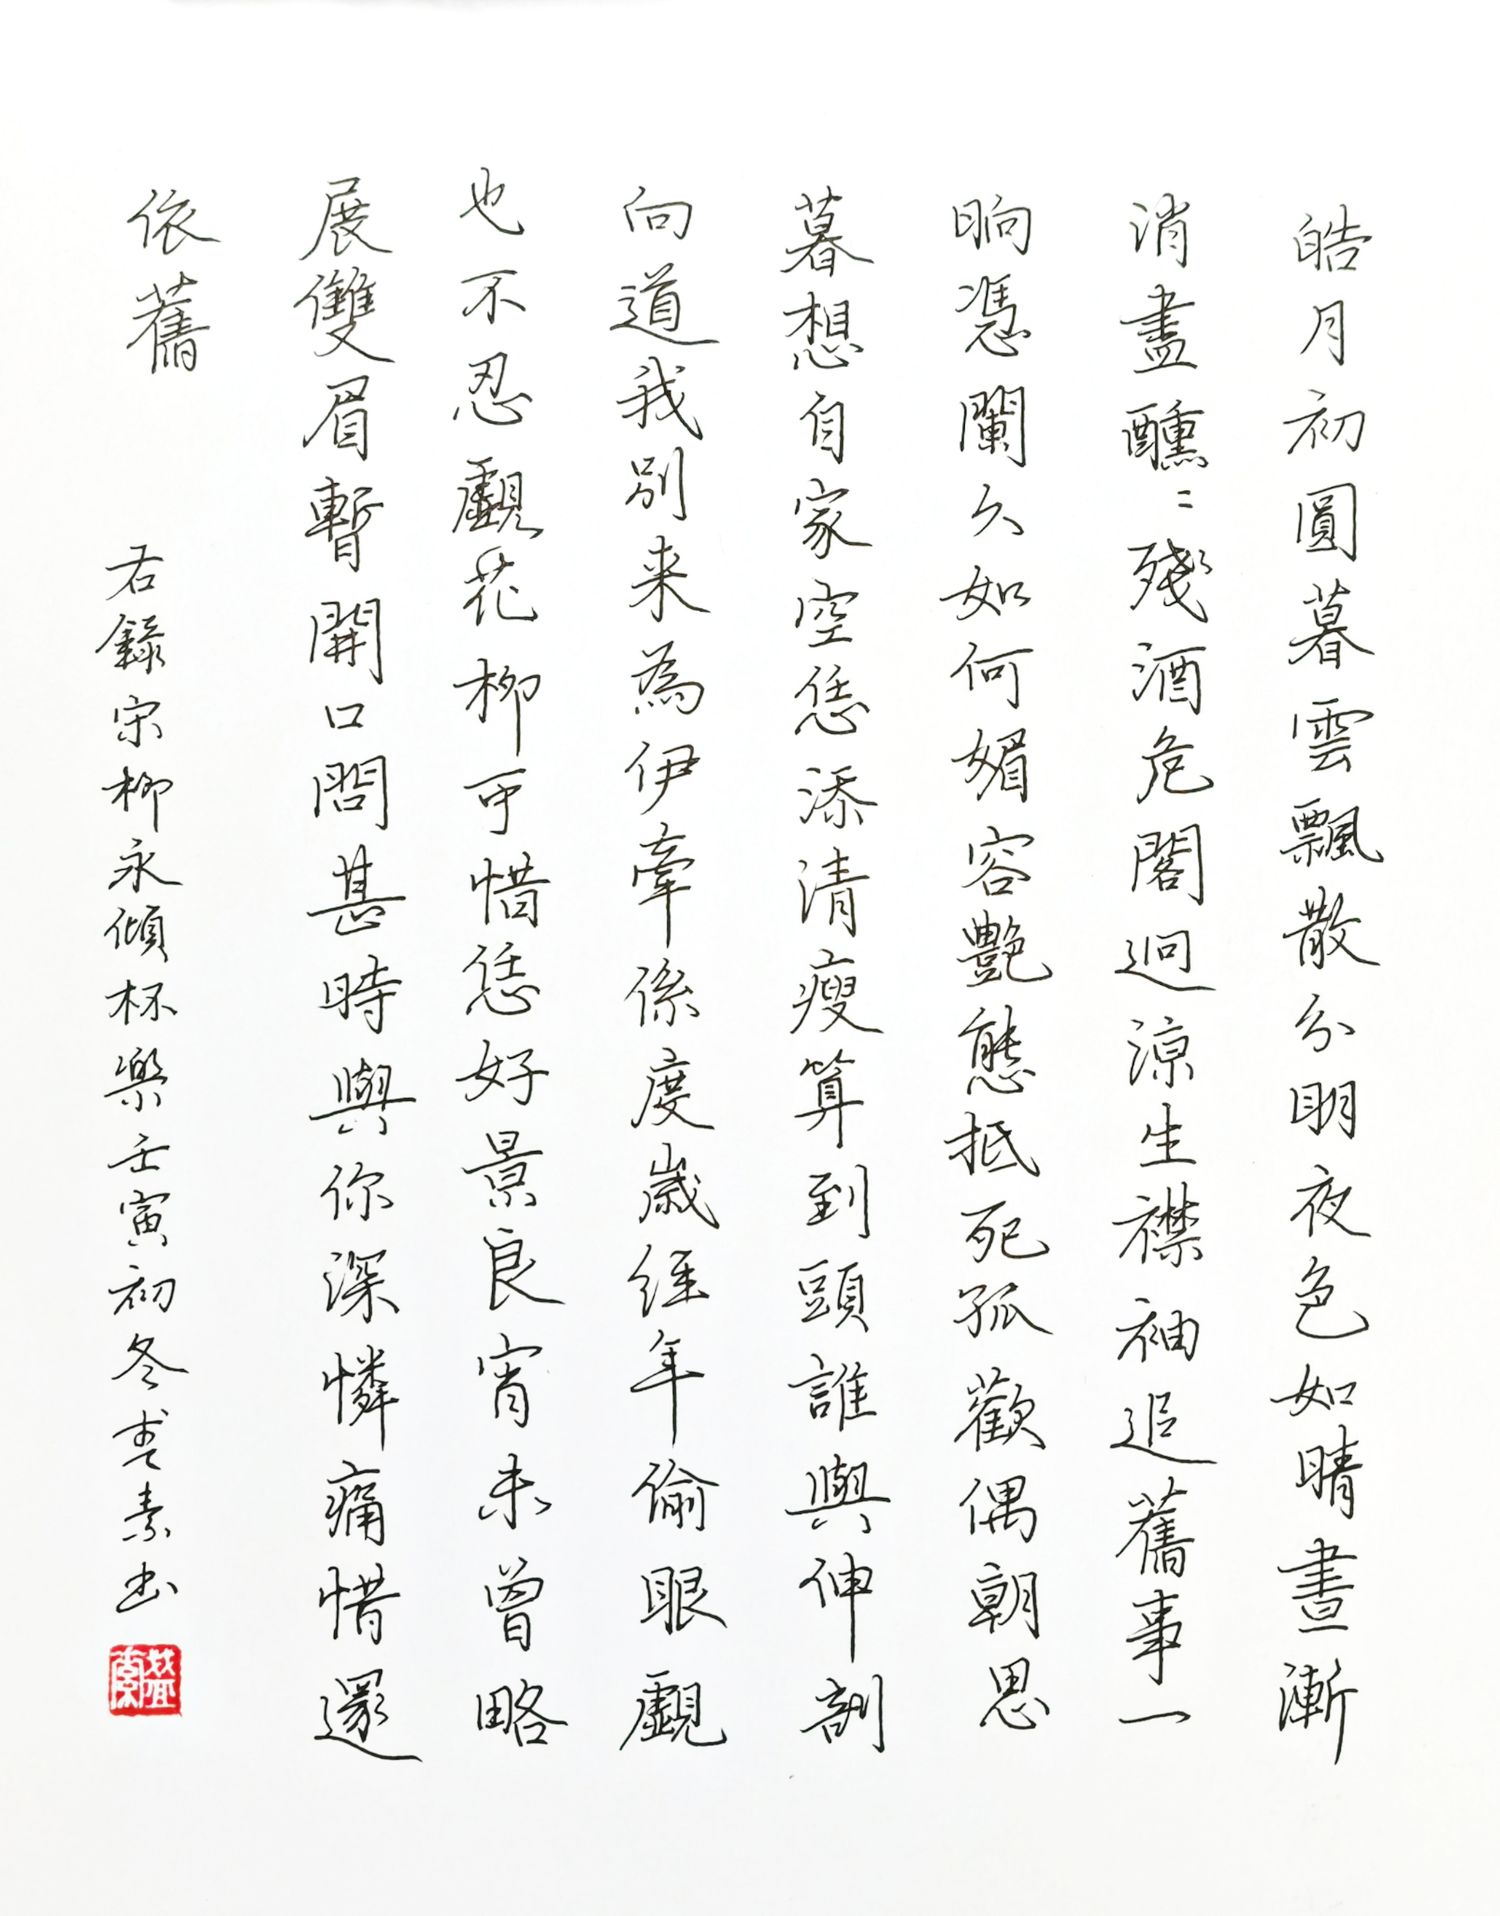 皓月初圓暮雲飄散分明夜色如晴晝漸
消盡醺〻殘酒危閣迥涼生襟袖追舊事一
晌憑闌久如何媚容艷態抵死孤歡偶朝思
暮想自家空恁添清瘦算到頭誰與伸剖
向道我別来為伊牽係度歲經年偷眼覷
也不忍覷花柳可惜恁好景良宵未曾略
展雙眉暫開口問甚時與你深憐痛惜還
依舊
右錄宋柳永傾杯樂壬寅初冬素書